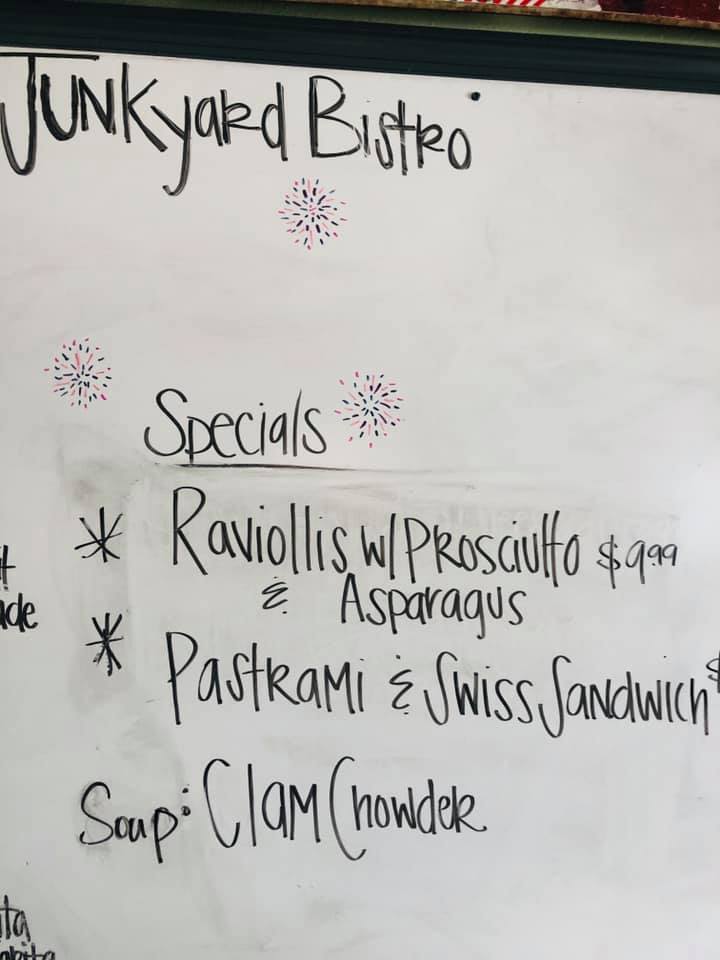 JUNKyaRd BistRo
Specials
* Raviollis w/ PRosciutto $9.99
& Asparagus
* PastRaMi & Swiss Sandwich $
Soup: ClaM ChowdeR